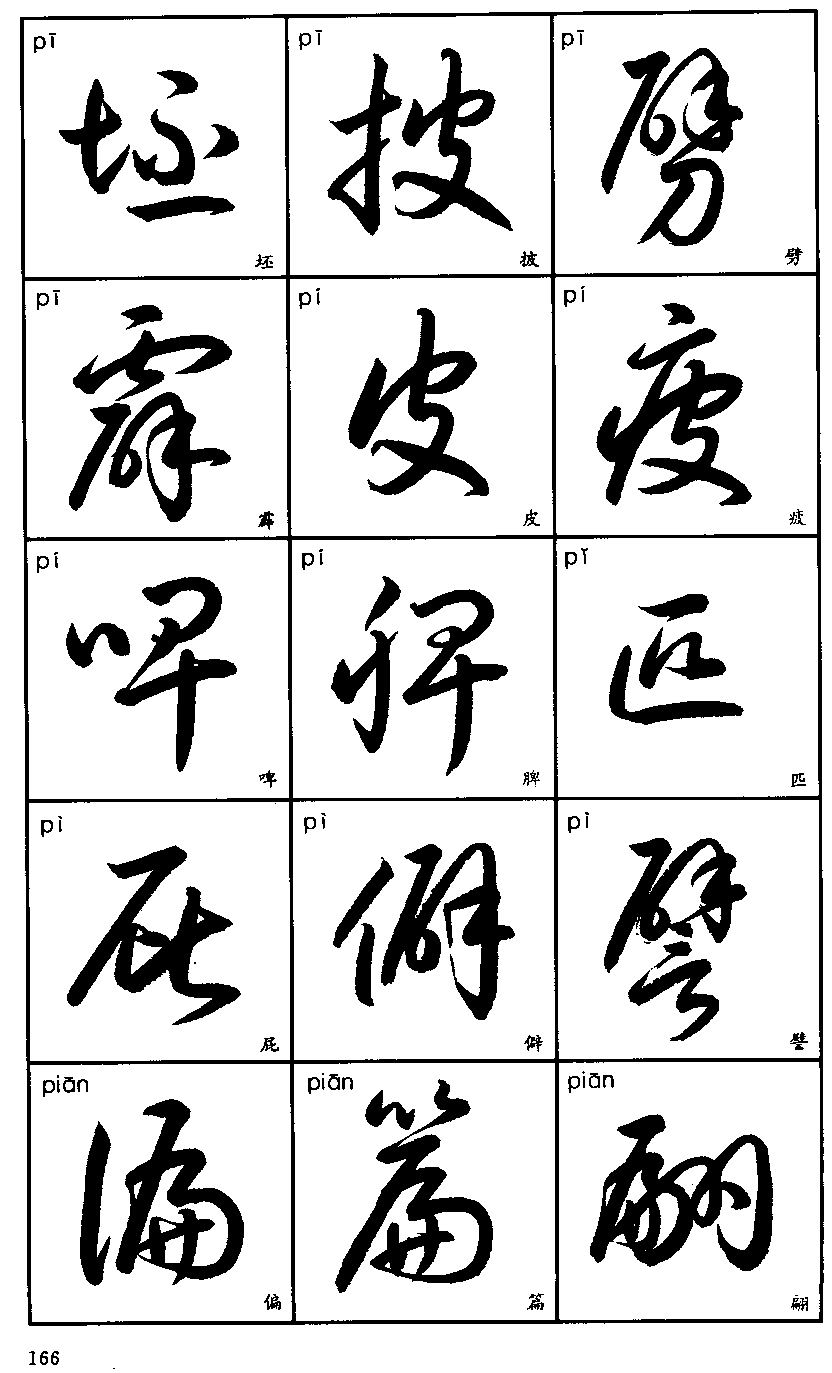 pī pī pī
坯 披 劈
坯 披 劈
pī pí pí
霹 皮 疲
霹 皮 疲
pí pí pǐ
啤 脾 匹
啤 脾 匹
pì pì pì
屁 僻 譬
屁 僻 譬
piān piān piān
偏 篇 翩
偏 篇 翩
166